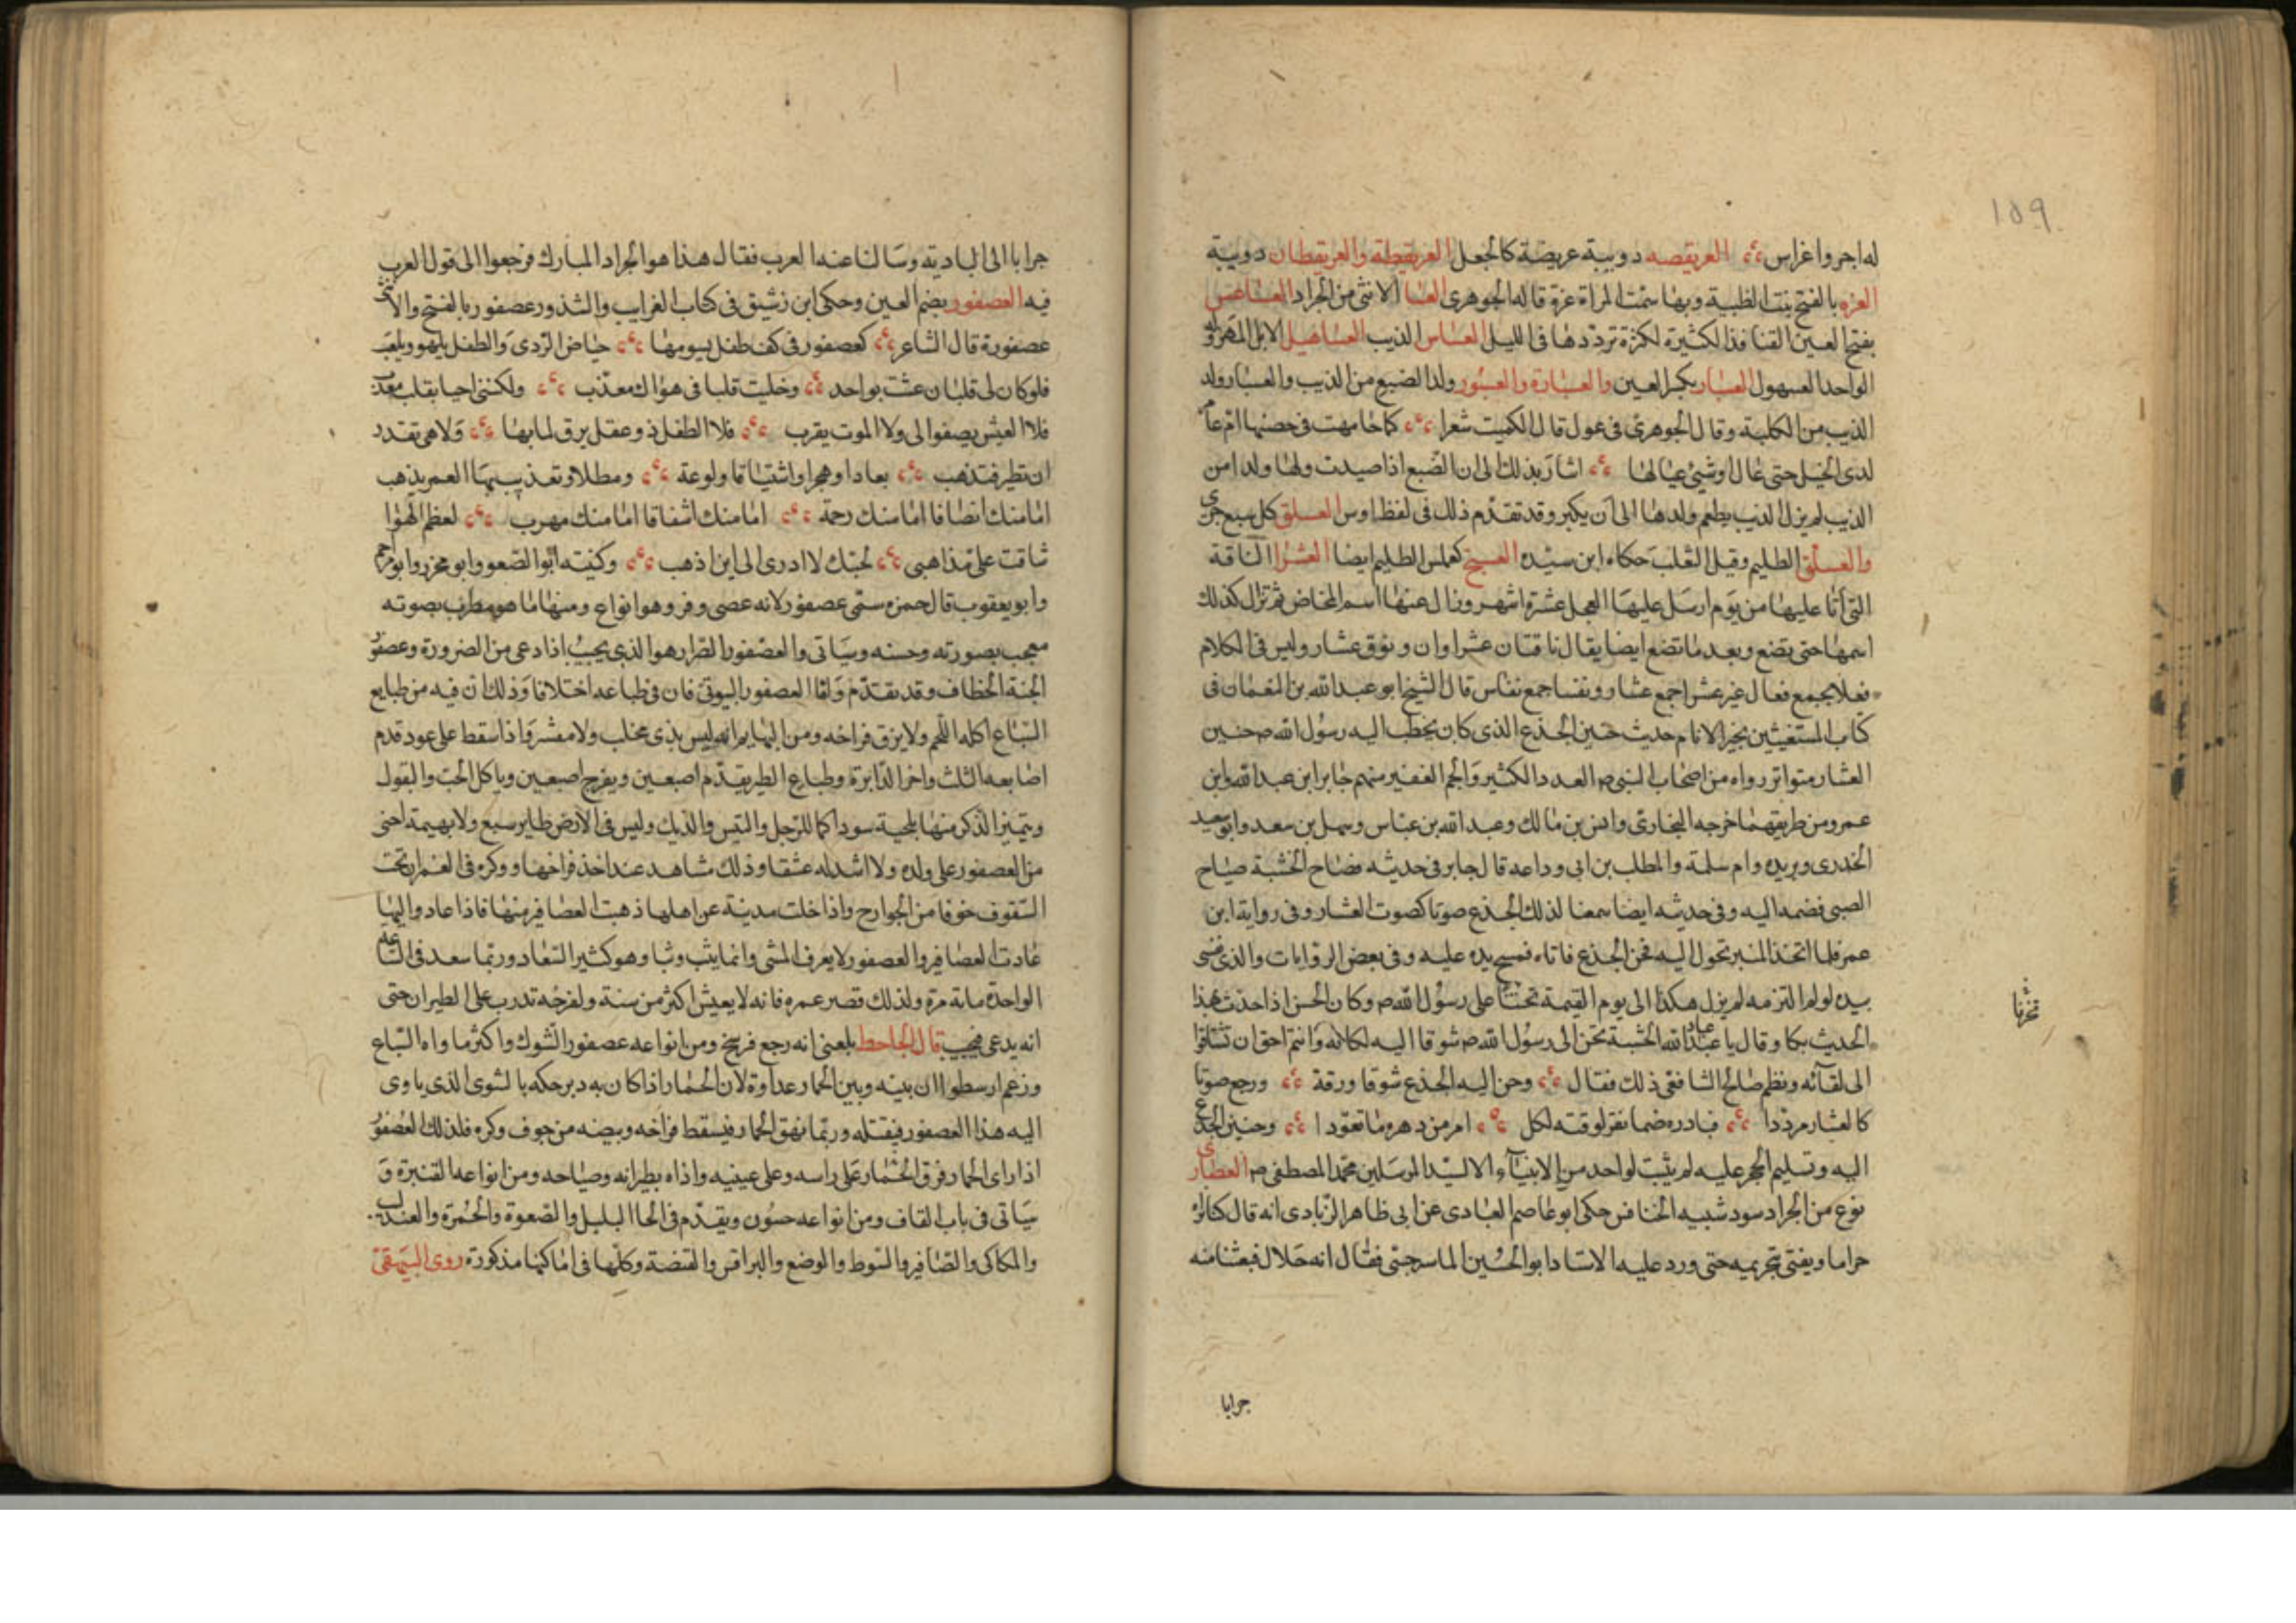 ١٥٩
له اجر واغراس العريقصه دويبة عريضة كالجعل العريقيطة والعريقطان دويبة
العزه بالفتح بنت الظبية وبها سمت المراة عزة قاله الجوهرى العسا الانثى من الجراد العساعس
بفتح العين القنافذ الكثيرة لكثرة ترددها فى الليل العساس الذيب العساهيل الابل المهزولة
الواحد العسهول العسبار بكسر العين والعسبارة والعسبور ولد الضبع من الذيب والعسبار ولد
الذيب من الكلبة وقال الجوهرى فى عول قال الكميت شعرا كما خامرت فى حضنها ام عامر
لدى الحبل حتى غال اوس عيالها اشار بذلك الى ان الضبع اذا صيدت ولها ولد من
الذيب لم يزل الذيب يطعم ولدها الى ان يكبر وقد تقدم ذلك فى لفظ اوس العسلق كل سبع جرى
والعسلق الظليم وقيل الثعلب حكاه ابن سيده العسنج كعملس الظليم ايضا العشرا الناقة
التى اتا عليها من يوم ارسل عليها الفحل عشرة اشهر وزال عنها اسم المخاض ثم تزال كذلك
اسمها حتى تضع وبعد ما تضع ايضا يقال ناقتان عشراوان ونوق عشار وليس فى الكلام
فعلا يجمع فعال غير عشرا جمع عشار ونفسا جمع نفاس قال الشيخ ابو عبد الله بن النعمان فى
كتاب المستغيثين بخير الانام حديث حنين الجذع الذى كان يخطب اليه رسول الله ص حنين
العشار متواتر رواه من اصحاب النبى ص العدد الكثير والجم الغفير منهم جابر ابن عبد الله وابن
عمر ومن طريقهما خرجه البخارى وانس بن مالك وعبد الله بن عباس وسهل بن سعد وابو سعيد
الخدرى وبريده وام سلمة والمطلب بن ابى وداعه قال جابر فى حديثه فصاح الخشبة صياح
الصبى فضمه اليه وفى حديثه ايضا سمعنا لذلك الجذع صوتا كصوت العشار وفى رواية ابن
عمر فلما اتخذ المنبر تحول اليه فحن الجذع فاتاه فمسح يده عليه وفى بعض الروايات والذى نفسى
بيده لو لم التزمه لم يزل هكذا الى يوم القيمة تحننا على رسول الله ص وكان الحسن اذا حدث بهذا
تحزنا
الحديث بكا وقال يا عباد الله الخشبة تحن الى رسول الله ص شوقا اليه لمكانه وانتم احق ان تشتاقوا
الى لقائه ونظم صالح الشافعى ذلك فقال وحن اليه الجذع شوقا ورقة ورجع صوتا
كالعشار مرددا فبادره ضما فقر لوقته لكل امر من دهره ما تعودا وحنين الجذع
اليه وتسليم الحجر عليه لم يثبت لواحد من الانبياء الا لسيد المرسلين محمد المصطفى ص العطارى
نوع من الجراد سود شبيه الخنافس حكى ابو عاصم العبادى عن ابى طاهر الزيادى انه قال كنا نراه
حراما ويفتى بتحريمه حتى ورد عليه الاستاد ابو الحسين الماسرجسى فقال انه حلال فبعثنا منه
جرابا
جرابا الى البادية وسالنا عنه العرب فقال هذا هو الجراد المبارك فرجعوا الى قول العرب
فيه العصفور بضم العين وحكى ابن رشيق فى كتاب الغرايب والشذور عصفور بالفتح والانثى
عصفورة قال الشاعر كعصفور فى كف طفل يسومها حياض الردى والطفل يلهو ويلعب
فلو كان لى قلبان عشت بواحد وخليت قلبا فى هواك معذب ولكننى احيا بقلب معذب
فلا العيش يصفوا لى ولا الموت يقرب فلا الطفل ذو عقل يرق لما بها ولا هى تقدر
ان تطير فتذهب بعادا وهجرا واشتياقا ولوعة ومطلا وتعذيب بها العمر يذهب
اما منك انصافا اما منك رحمة اما منك اشفاقا اما منك مهرب لعظم الهوا
ضاقت على مذاهبى لحبك لا ادرى الى اين اذهب وكنيته ابو الصعو وابو محرز وابو مزاحم
وابو يعقوب قال حمزه سمى عصفور لانه عصى وفر وهو انواع ومنها ما هو مطرب بصوته
معجب بصورته وحسنه وسياتى والعصفور الصرار هو الذى يجيب اذا دعى من الضرورة وعصفور
الجنة الخطاف وقد تقدم واما العصفور البيوتى فان فى طباعه اختلافا وذلك ان فيه من طبايع
السباع اكله اللحم ولا يزق فراخه ومن البهايم انه ليس بذى مخلب ولا منسر واذا سقط على عود قدم
اصابعه الثلث واخر الدابرة وطباع الطير يقدم اصبعين ويفرج اصبعين وياكل الحب والبقول
ويتميز الذكر منها بلحية سودا كما للرجل والتيس والديك وليس فى الارض طاير سبع ولا بهيمة احنى
من العصفور على ولده ولا اشد له عشقا وذلك مشاهد عند اخذ فراخها ووكره فى العمران تحت
السقوف خوفا من الجوارح واذا خلت مدينة عن اهلها ذهبت العصافير منها فاذا عادوا اليها
عادت العصافير والعصفور لا يعرف المشى وانما يثب وثبا وهو كثير السفاد وربما سفد فى الساعة
الواحدة مائة مرة ولذلك قصر عمره فانه لا يعيش اكثر من سنة ولفرخه تدرب على الطيران حتى
انه يدعى فيجيب قال الجاحظ بلغنى انه رجع فرسخ ومن انواعه عصفور الشوك واكثر ماواه السباع
وزعم ارسطوا ان بينه وبين الحمار عداوة لان الحمار اذا كان به دبر حكه بالشوك الذى ياوى
اليه هذا العصفور فيقتله وربما نهق الحمار فيسقط فراخه وبيضه من جوف وكره فلذلك العصفور
اذا راى الحمار فرق الحمار على راسه وعلى عينيه واذاه بطيرانه وصياحه ومن انواعه القنبرة و
سياتى فى باب القاف ومن انواعه حسون ويقدم فى الحا البلبل والصعوة والحمرة والعندليب
والمكاكى والصافر والتنوط والوضع والبراقش والقبصة وكلها فى اماكنها مذكورة روى البيهقى